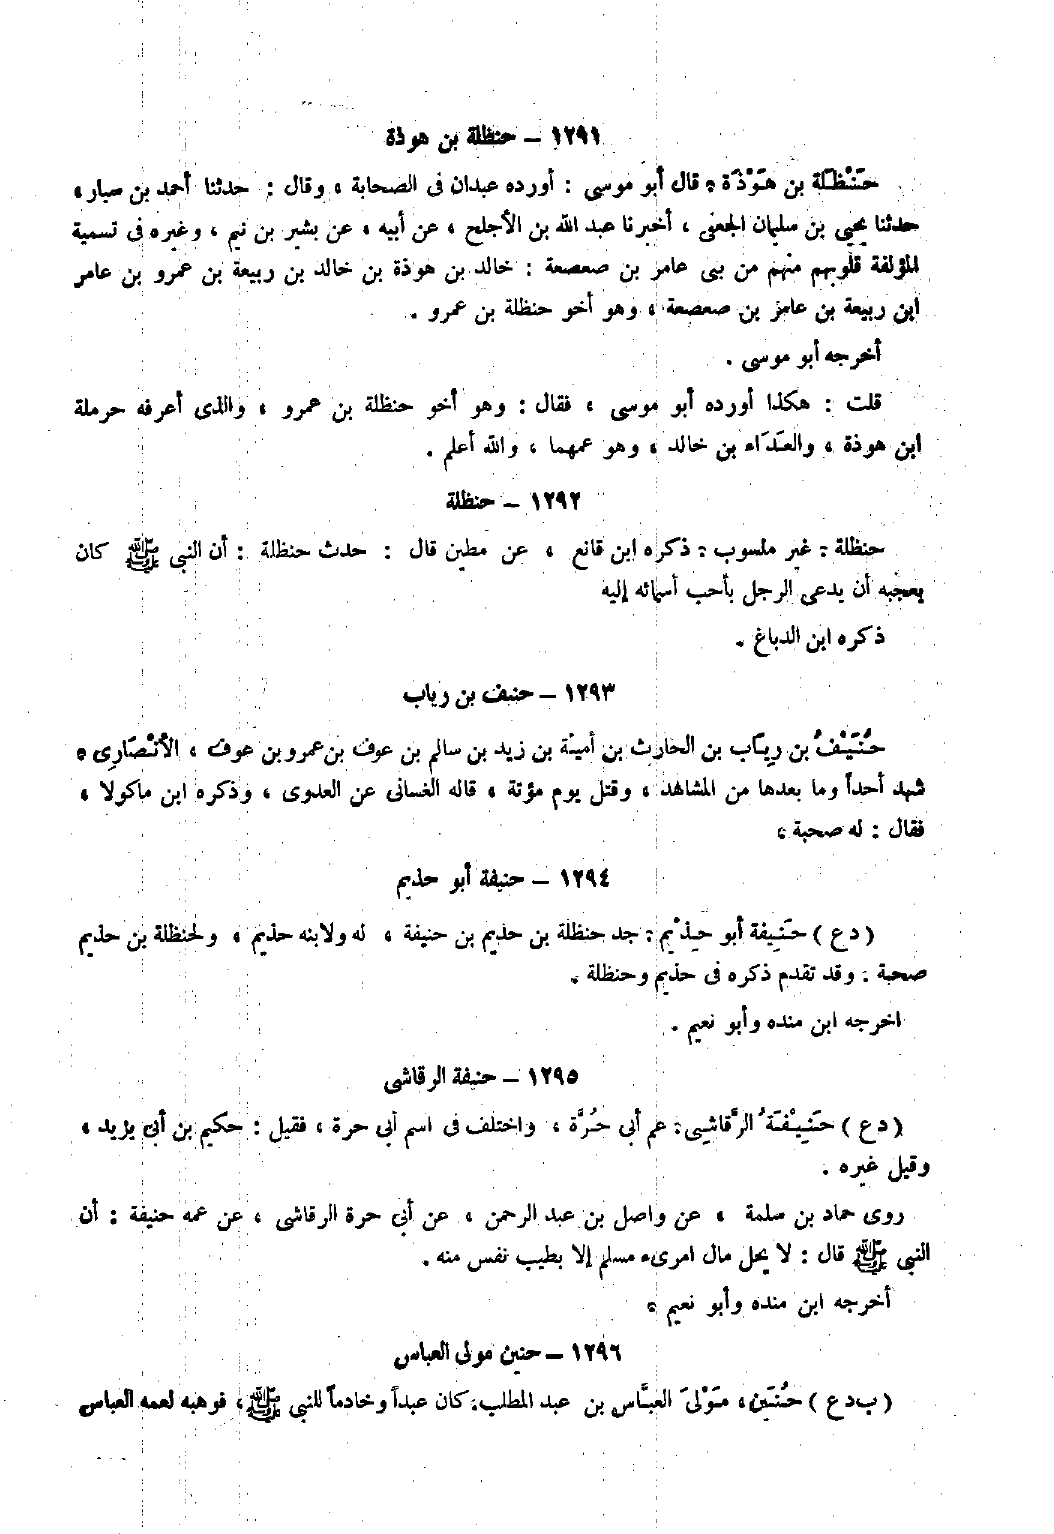 ١٢٩١ – حنظلة بن هوذة
حَنْظَلة بن هَوْذَة ، قال أبو موسى : أورده عبدان فى الصحابة ، وقال : حدثنا أحمد بن سيار ،
حدثنا يحيى بن سليمان الجعفى ، أخبرنا عبد الله بن الأجلح ، عن أبيه ، عن بشير بن تيم ، وغيره فى تسمية
المؤلفة قلوبهم منهم من بنى عامر بن صعصعة : خالد بن هوذة بن خالد بن ربيعة بن عمرو بن عامر
ابن ربيعة بن عامر بن صعصعة ، وهو أخو حنظلة بن عمرو .
أخرجه أبو موسى .
قلت : هكذا أورده أبو موسى ، فقال : وهو أخو حنظلة بن عمرو ، والذى أعرفه حرملة
ابن هوذة ، والعَدَّاء بن خالد ، وهو عمهما ، والله أعلم .
١٢٩٢ – حنظلة
حنظلة . غير منسوب . ذكره ابن قانع ، عن مطين قال : حدث حنظلة : أن النبى ﷺ كان
يعجبه أن يدعى الرجل بأحب أسمائه إليه
ذكره ابن الدباغ .
١٢٩٣ – حنيف بن رياب
حُنَيْفُ بن رِيَاب بن الحارث بن أمية بن زيد بن سالم بن عوف بن عمرو بن عوف ، الأنْصَارِى .
شهد أحداً وما بعدها من المشاهد ، وقتل يوم مؤتة ، قاله الغسانى عن العدوى ، وذكره ابن ماكولا ،
فقال : له صحبة .
١٢٩٤ – حنيفة أبو حذيم
( د ع ) حَنِيفة أبو حِذْيم . جد حنظلة بن حذيم بن حنيفة ، له ولابنه حذيم ، ولحنظلة بن حذيم
صحبة . وقد تقدم ذكره فى حذيم وحنظلة .
اخرجه ابن منده وأبو نعيم .
١٢٩٥ – حنيفة الرقاشى
( د ع ) حَنِيْفَةُ الرَّقاشِى. عم أبى حُرَّة ، واختلف فى اسم أبى حرة ، فقيل : حكيم بن أبى يزيد ،
وقيل غيره .
روى حماد بن سلمة ، عن واصل بن عبد الرحمن ، عن أبى حرة الرقاشى ، عن عمه حنيفة : أن
النبى ﷺ قال : لا يحل مال امرىء مسلم إلا بطيب نفس منه .
أخرجه ابن منده وأبو نعيم .
١٢٩٦ – حنين مولى العباس
( ب د ع ) حُنَين، مَوْلىَ العبَّاس بن عبد المطلب. كان عبداً وخادماً للنبى ﷺ، فوهبه لعمه العباس